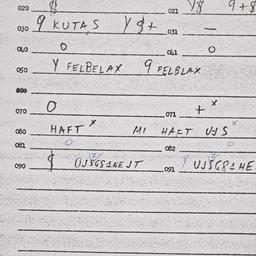 020 $ 021 Y$ 9+$
030 9 KUTAS Y $+ 031 —
040 O 041 O
050 Y FELBELAX 9 FELBLAX
060
070 O 071 + x
080 HAFT x MI HAFT UJS x
081 O 082 O
090 $ 091 Y